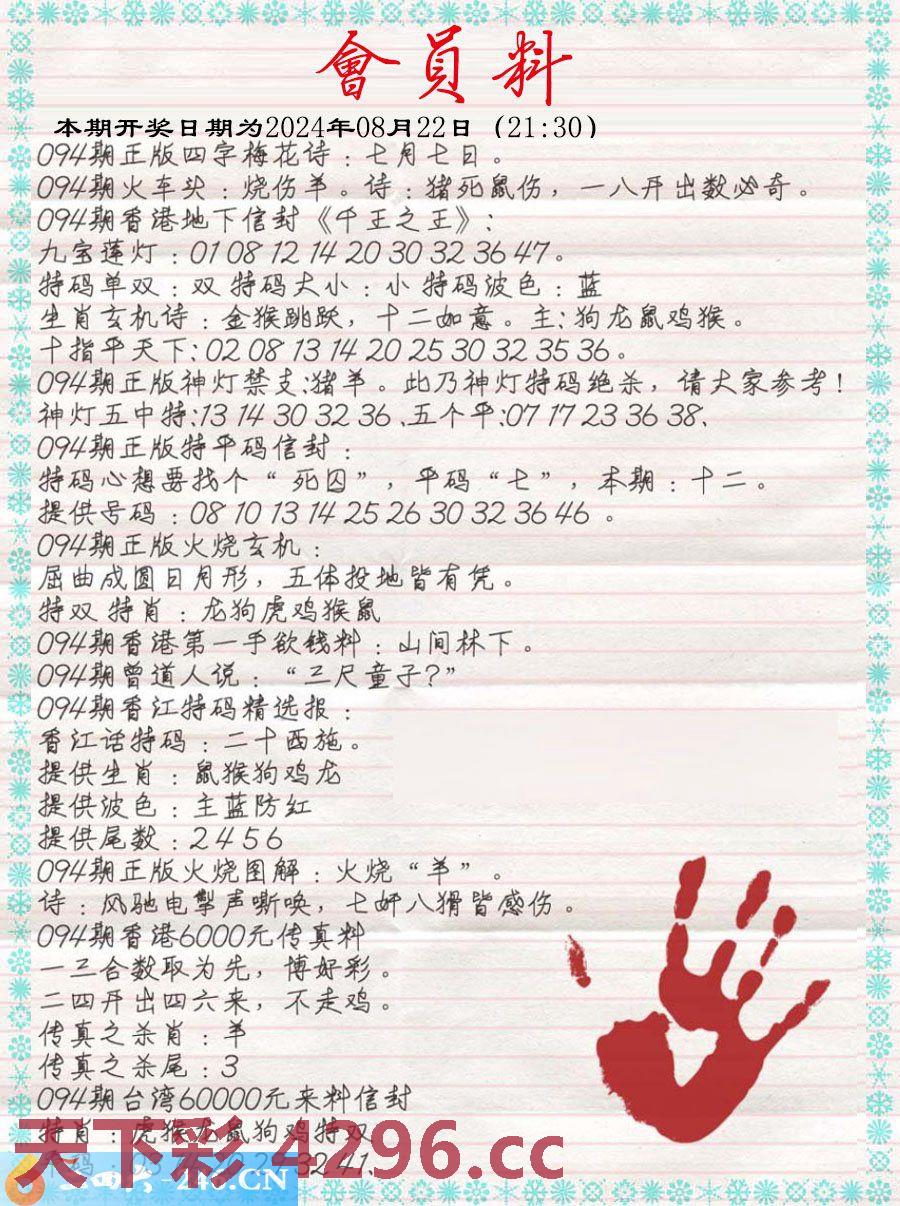 會員料
本期开奖日期为2024年08月22日（21:30）
094期正版四字梅花诗：七月七日。
094期火车头：烧伤羊。诗：猪死鼠伤，一八开出数必奇。
094期香港地下信封《千王之王》:
九宝莲灯：01 08 12 14 20 30 32 36 47。
特码单双：双 特码大小：小 特码波色：蓝
生肖玄机诗：金猴跳跃，十二如意。主:狗龙鼠鸡猴。
十指平天下:02 08 13 14 20 25 30 32 35 36。
094期正版神灯禁支:猪羊。此乃神灯特码绝杀，请大家参考!
神灯五中特:13 14 30 32 36、五个平:07 17 23 36 38、
094期正版特平码信封：
特码心想要找个“死囚”，平码“七”，本期：十二。
提供号码：08 10 13 14 25 26 30 32 36 46 。
094期正版火烧玄机：
屈曲成圆日月形，五体投地皆有凭。
特双 特肖：龙狗虎鸡猴鼠
094期香港第一手欲钱料：山间林下。
094期曾道人说：“三尺童子?”
094期香江特码精选报：
香江话特码：二十西施。
提供生肖：鼠猴狗鸡龙
提供波色：主蓝防红
提供尾数：2 4 5 6
094期正版火烧图解：火烧“羊”。
诗：风驰电掣声嘶唤，七奸八猾皆感伤。
094期香港6000元传真料
一三合数取为先，博好彩。
二四开出四六来，不走鸡。
传真之杀肖：羊
传真之杀尾：3
094期台湾60000元来料信封
特肖：虎猴龙鼠狗鸡特双
天下彩 4296.cc
-246.CN